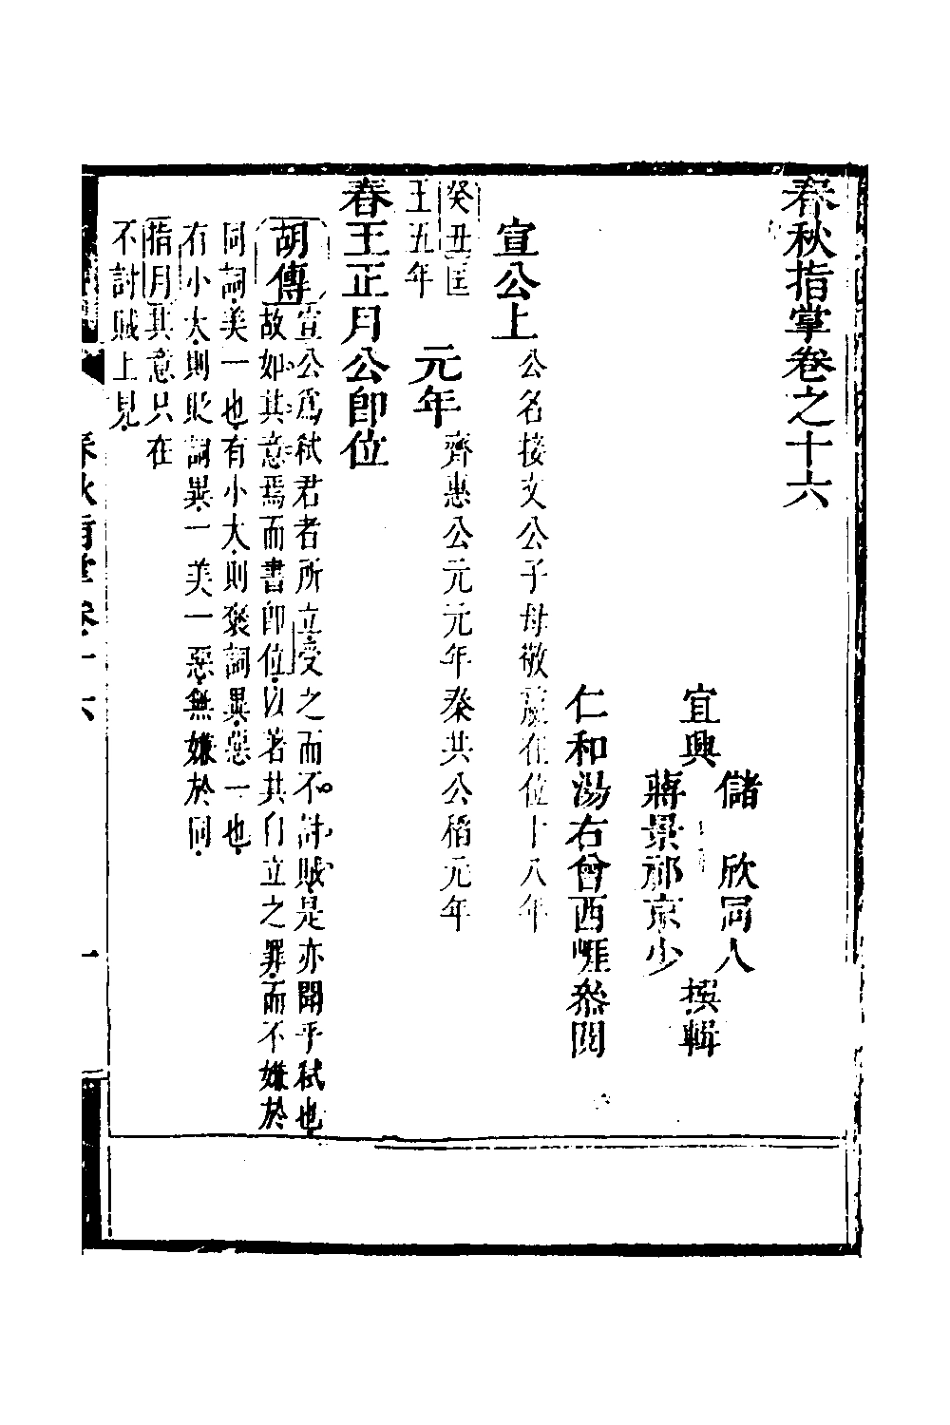 春秋指掌卷之十六
儲　欣同人
宜興　撰輯
蔣景祁京少
仁和湯右曾西崖叅閱
宣公上 公名接文公子母敬嬴在位十八年
癸丑匡
王五年　元年 齊惠公元元年秦共公稻元年
春王正月公卽位
胡傳 宣公爲弒君者所立受之而不討賊是亦聞乎弒也
故如其意焉而書卽位以著其自立之罪而不嫌於
同詞美一也有小大則褒詞異惡一也
有小大則貶詞異一美一惡無嫌於同
指月其意只在
不討賊上見
春秋指掌卷十六
一